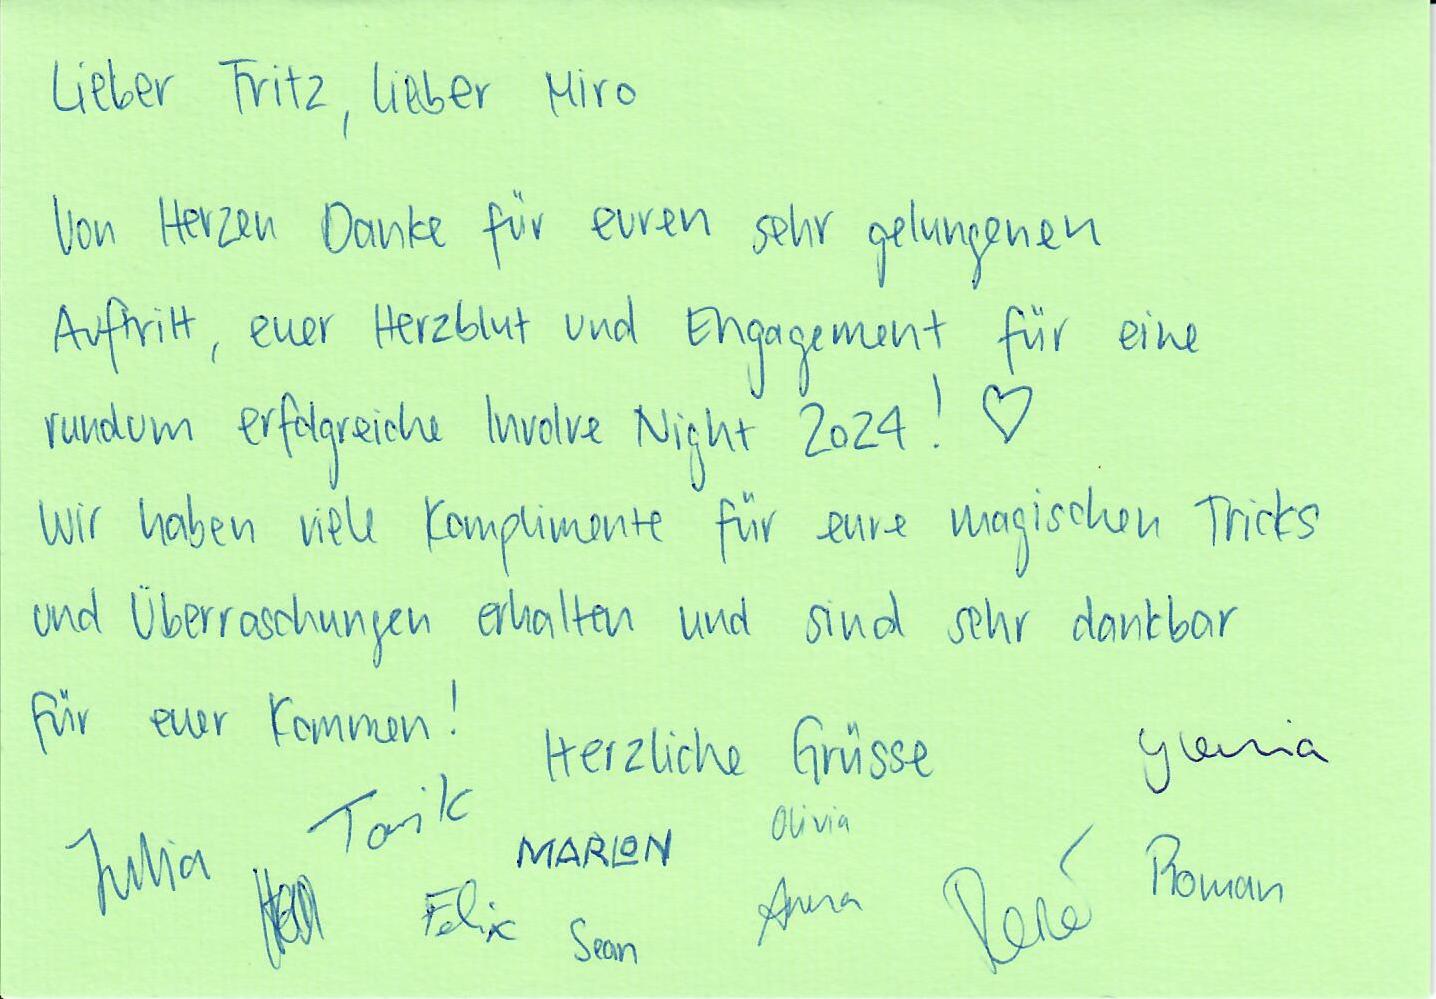 Lieber Fritz, lieber Miro
Von Herzen Danke für euren sehr gelungenen
Auftritt, euer Herzblut und Engagement für eine
rundum erfolgreiche Involve Night 2024! ♡
Wir haben viele Komplimente für eure magischen Tricks
und Überraschungen erhalten und sind sehr dankbar
für euer Kommen!
Herzliche Grüsse
Tarik
Olivia
Julia
MARLON
Roman
Felix
Sean
Anna
René